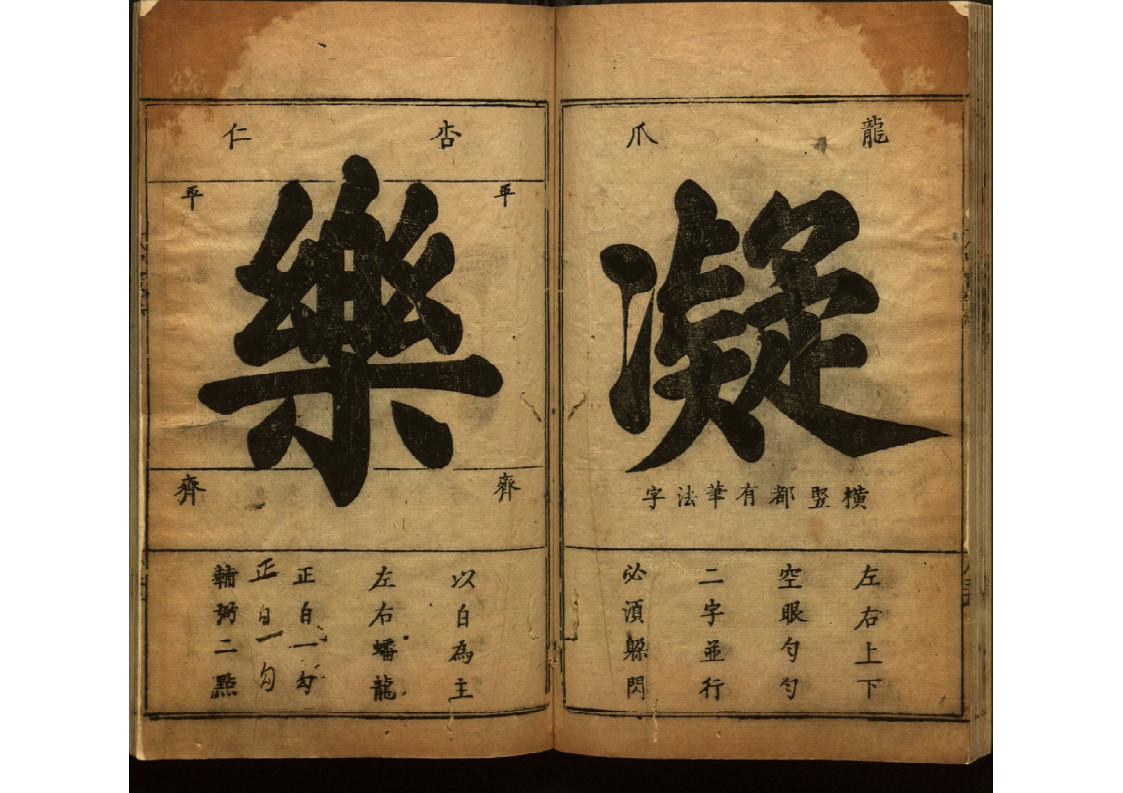 龍爪
凝
橫豎都有筆法字
左右上下
空眼勻勻
二字並行
必須躲閃
杏仁
平 平
樂
齊 齊
以白為主
左右蟠龍
正白一勾
正白一勾
輔弼二點